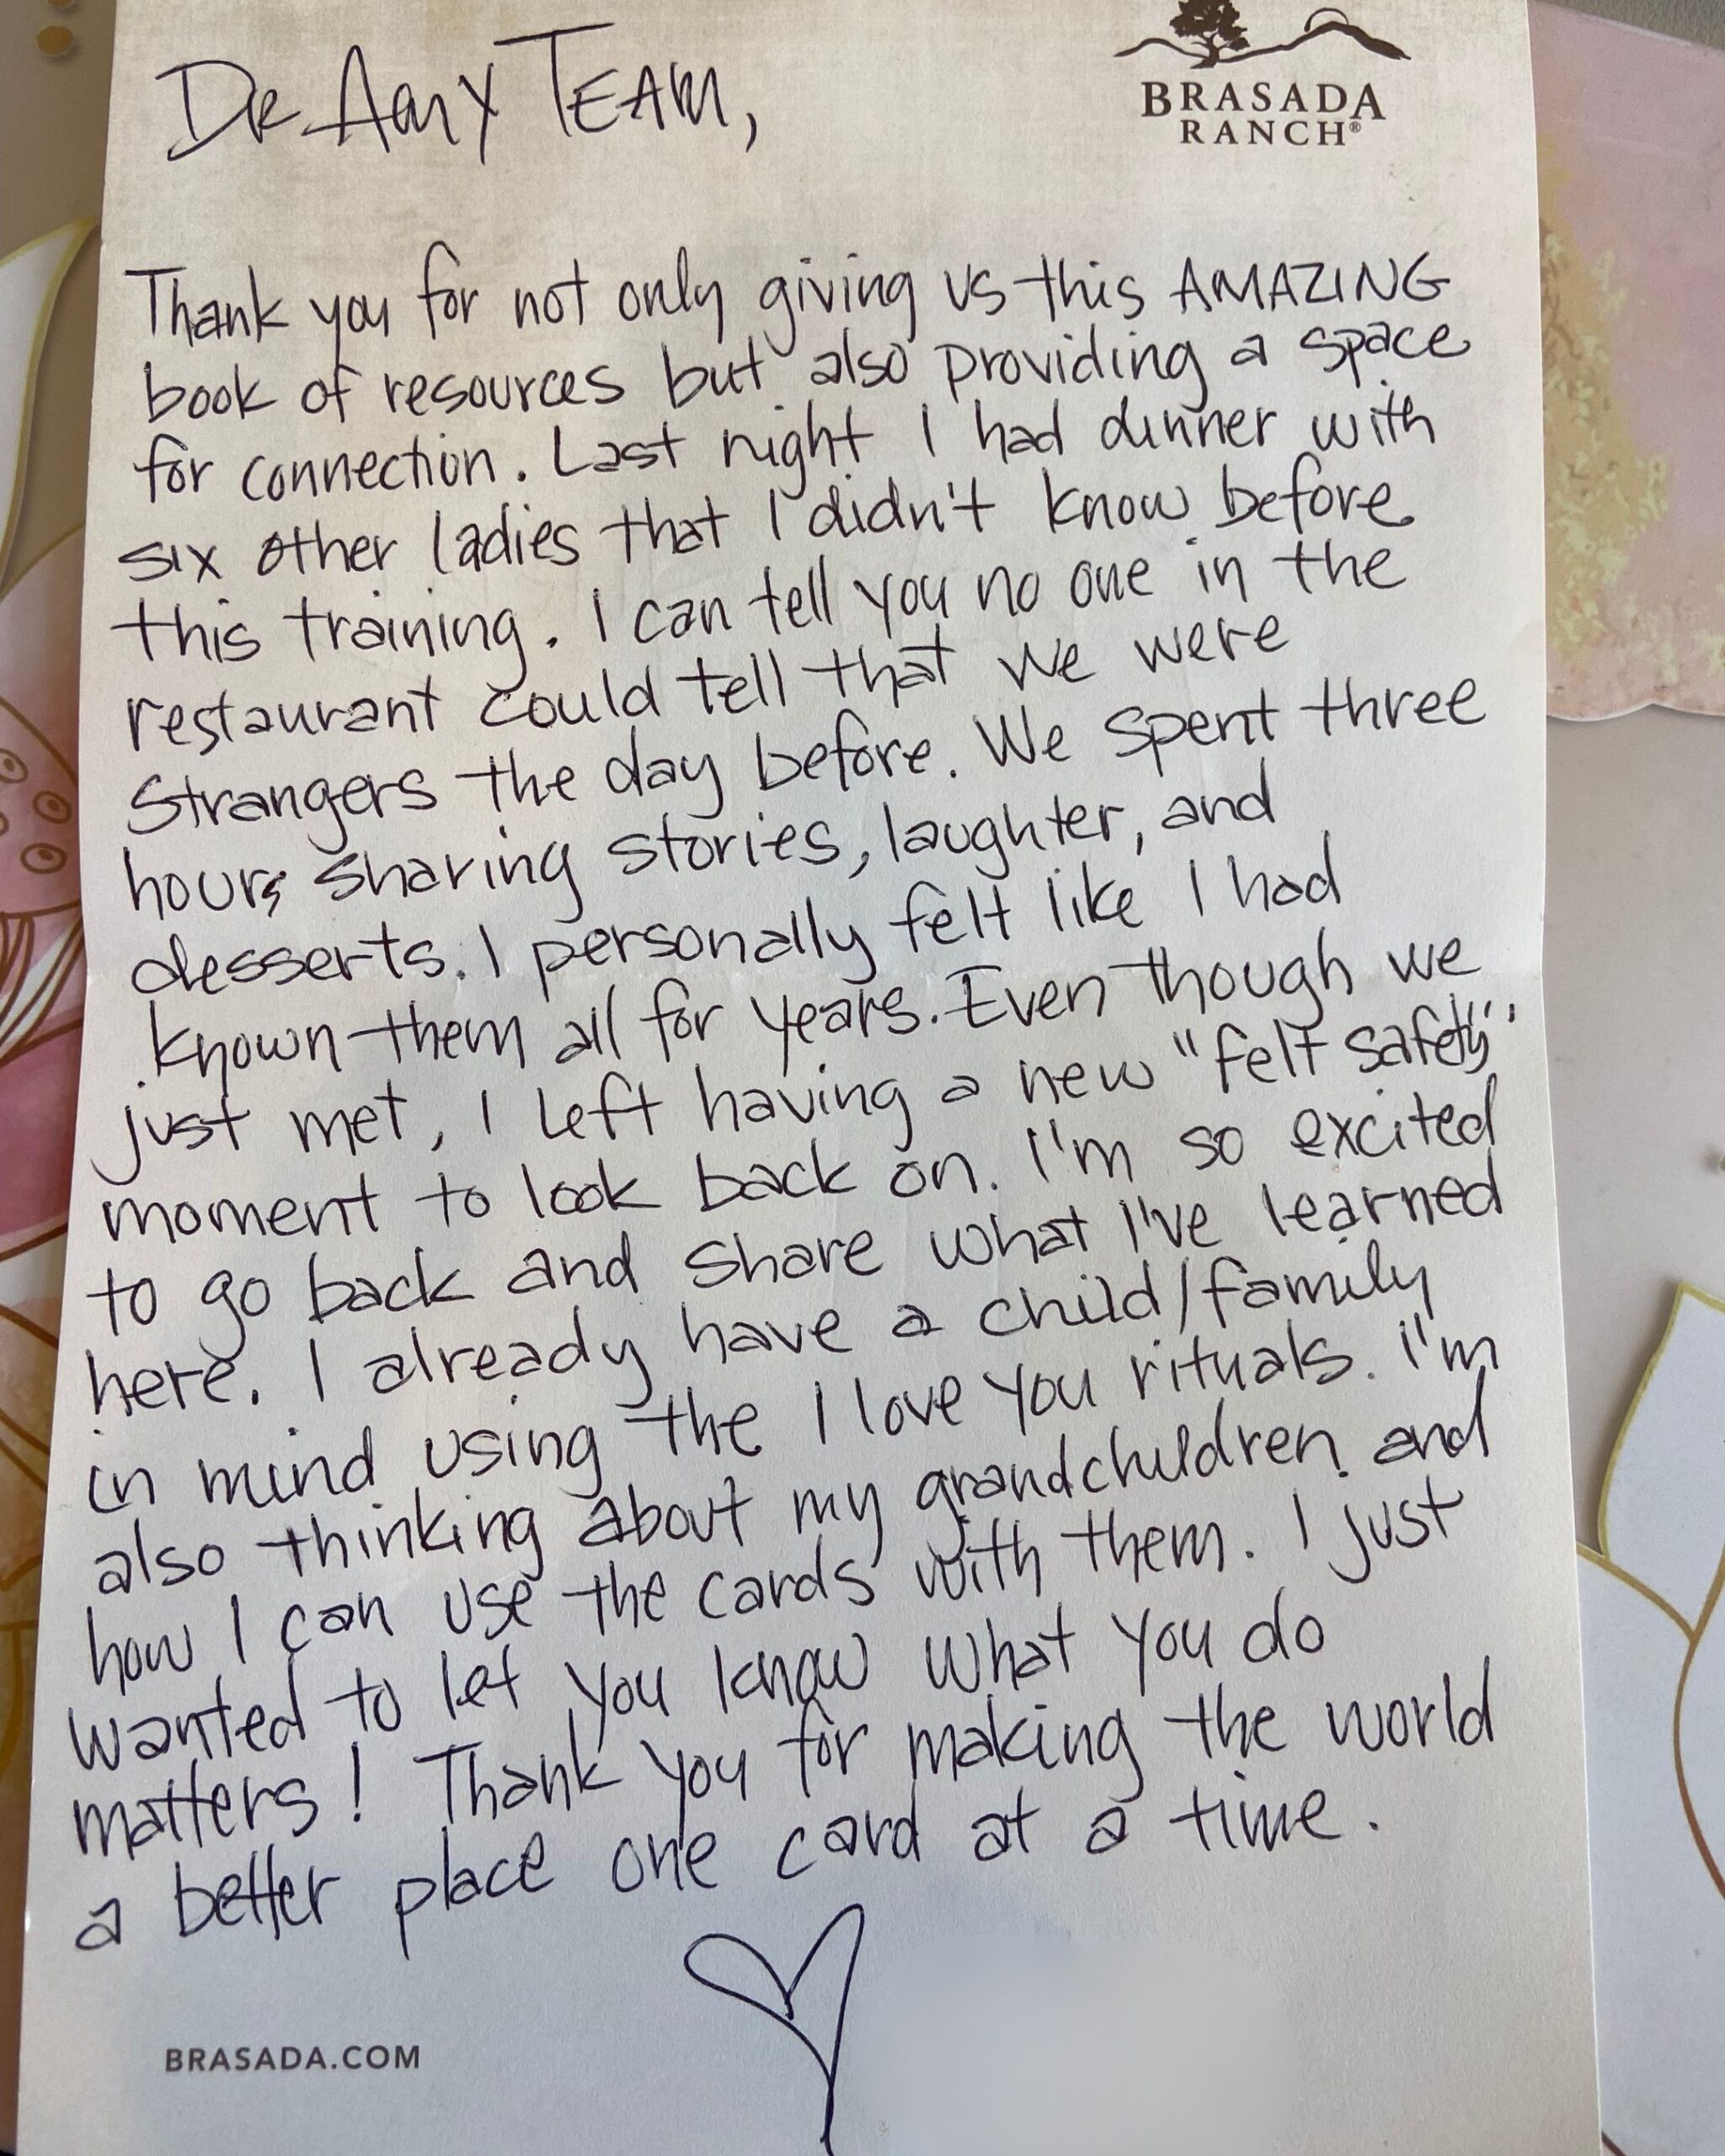 BRASADA
RANCH®
DR AMY TEAM,
Thank you for not only giving us this AMAZING
book of resources but also providing a space
for connection. Last night I had dinner with
six other ladies that I didn't know before
this training. I can tell you no one in the
restaurant could tell that we were
strangers the day before. We spent three
hours sharing stories, laughter, and
desserts. I personally felt like I had
known them all for years. Even though we
just met, I left having a new "felt safety"
moment to look back on. I'm so excited
to go back and share what I've learned
here. I already have a child/family
in mind using the I love you rituals. I'm
also thinking about my grandchildren and
how I can use the cards with them. I just
wanted to let you know what you do
matters! Thank you for making the world
a better place one card at a time.
BRASADA.COM